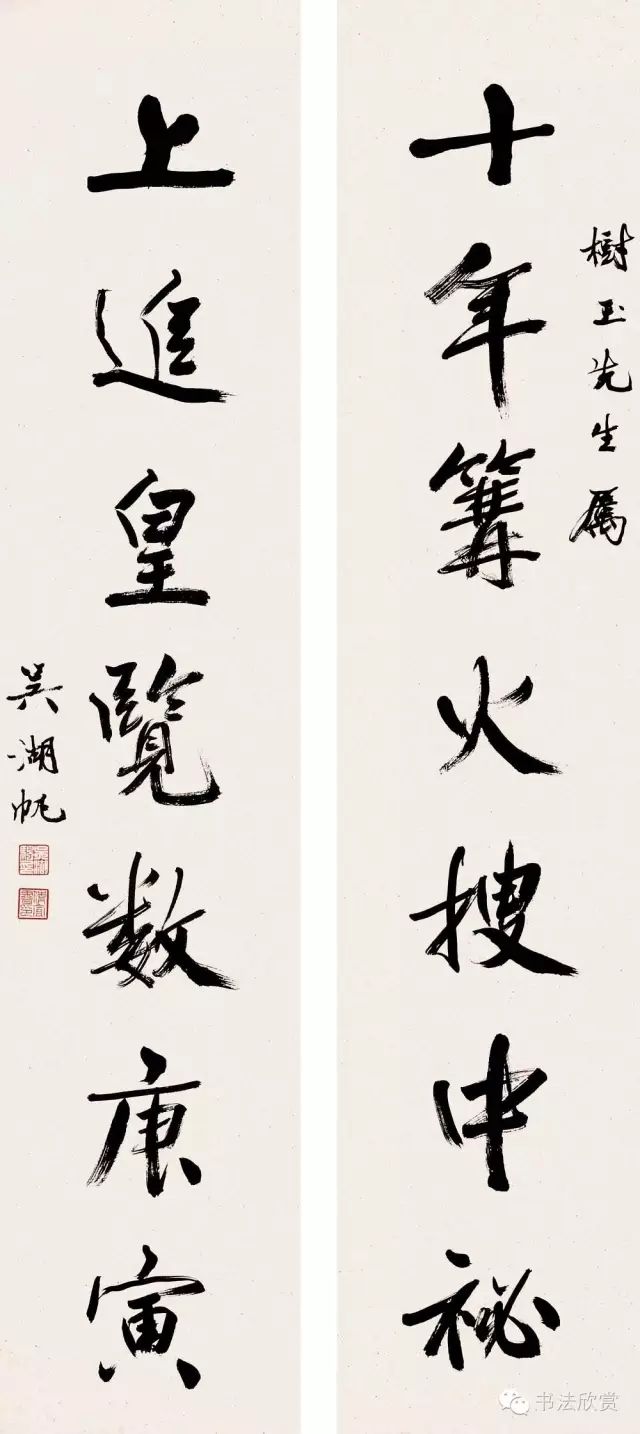 樹玉先生屬
十年篝火搜中祕
上進皇覽数庚寅
吳湖帆
书法欣赏